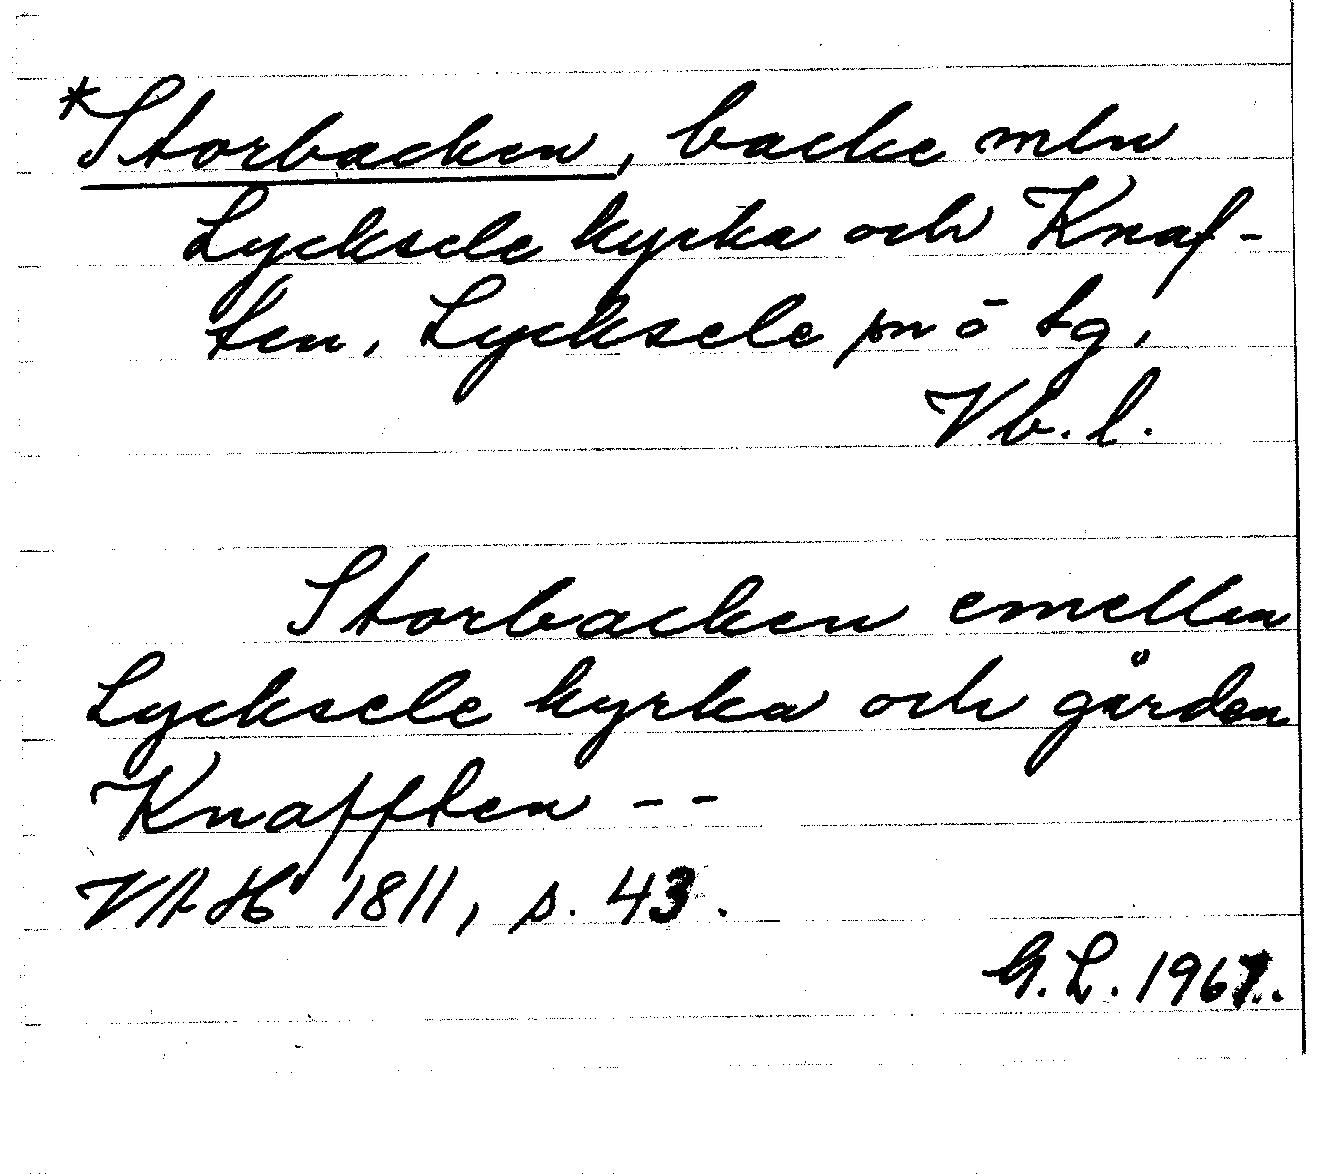 *Storbacken, backe mln
Lycksele kyrka och Knaf-
ten, Lycksele sn ō tg,
Vb. l.
Storbacken emellan
Lycksele kyrka och gården
Knafften - -
VAH 1811, s. 43.
G. L. 1967.